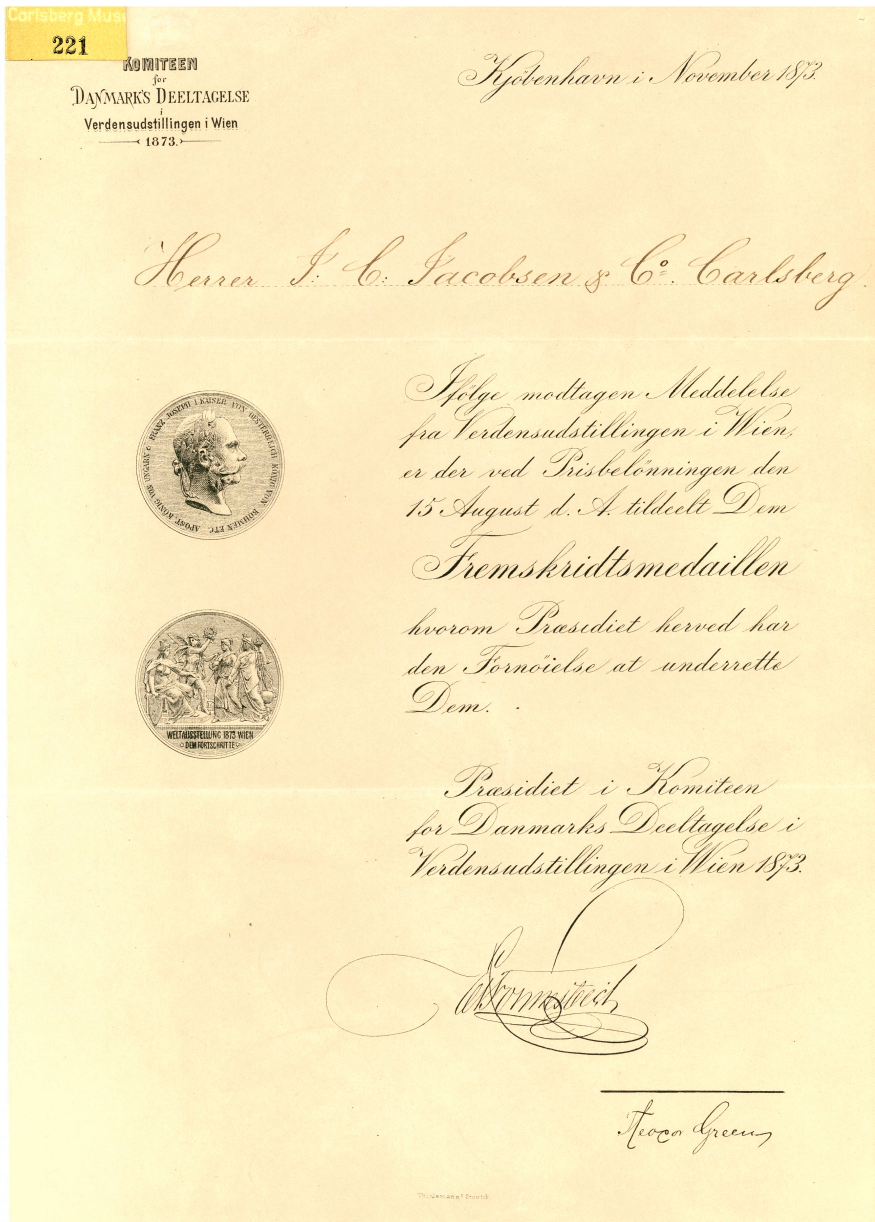 Carlsberg Mus
221
KOMITEEN
for
DANMARK'S DEELTAGELSE
i
Verdensudstillingen i Wien
1873.
Kjöbenhavn i November 1873.
Herrer I: C: Jacobsen & Co. Carlsberg.
FRANZ JOSEPH I KAISER VON OESTERREICH KÖNIG VON BÖHMEN ETC. APOST. KÖNIG VON UNGARN
Ifölge modtagen Meddelelse
fra Verdensudstillingen i Wien,
er der ved Prisbelönningen den
15 August d. A. tildeelt Dem
Fremskridtsmedaillen
hvorom Præsidiet herved har
den Fornöielse at underrette
Dem.
WELTAUSSTELLUNG 1873 WIEN
DEM FORTSCHRITTE
Præsidiet i Komiteen
for Danmarks Deeltagelse i
Verdensudstillingen i Wien 1873.
Green